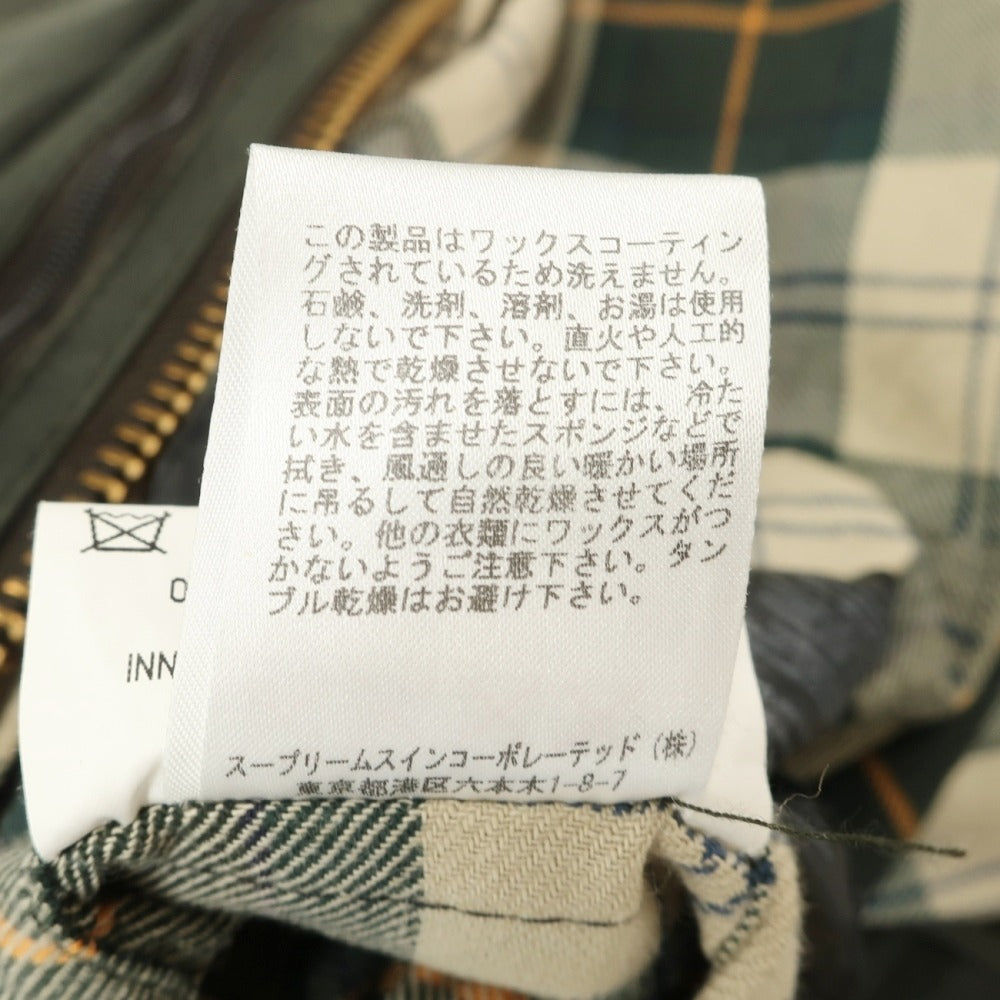 この製品はワックスコーティン
グされているため洗えません。
石鹸、洗剤、溶剤、お湯は使用
しないで下さい。直火や人工的
な熱で乾燥させないで下さい。
表面の汚れを落とすには、冷た
い水を含ませたスポンジなどで
拭き、風通しの良い暖かい場所
に吊るして自然乾燥させてくだ
さい。他の衣類にワックスがつ
かないようご注意下さい。タン
ブル乾燥はお避け下さい。
スープリームスインコーポレーテッド(株)
東京都港区六本木1-8-7
INN